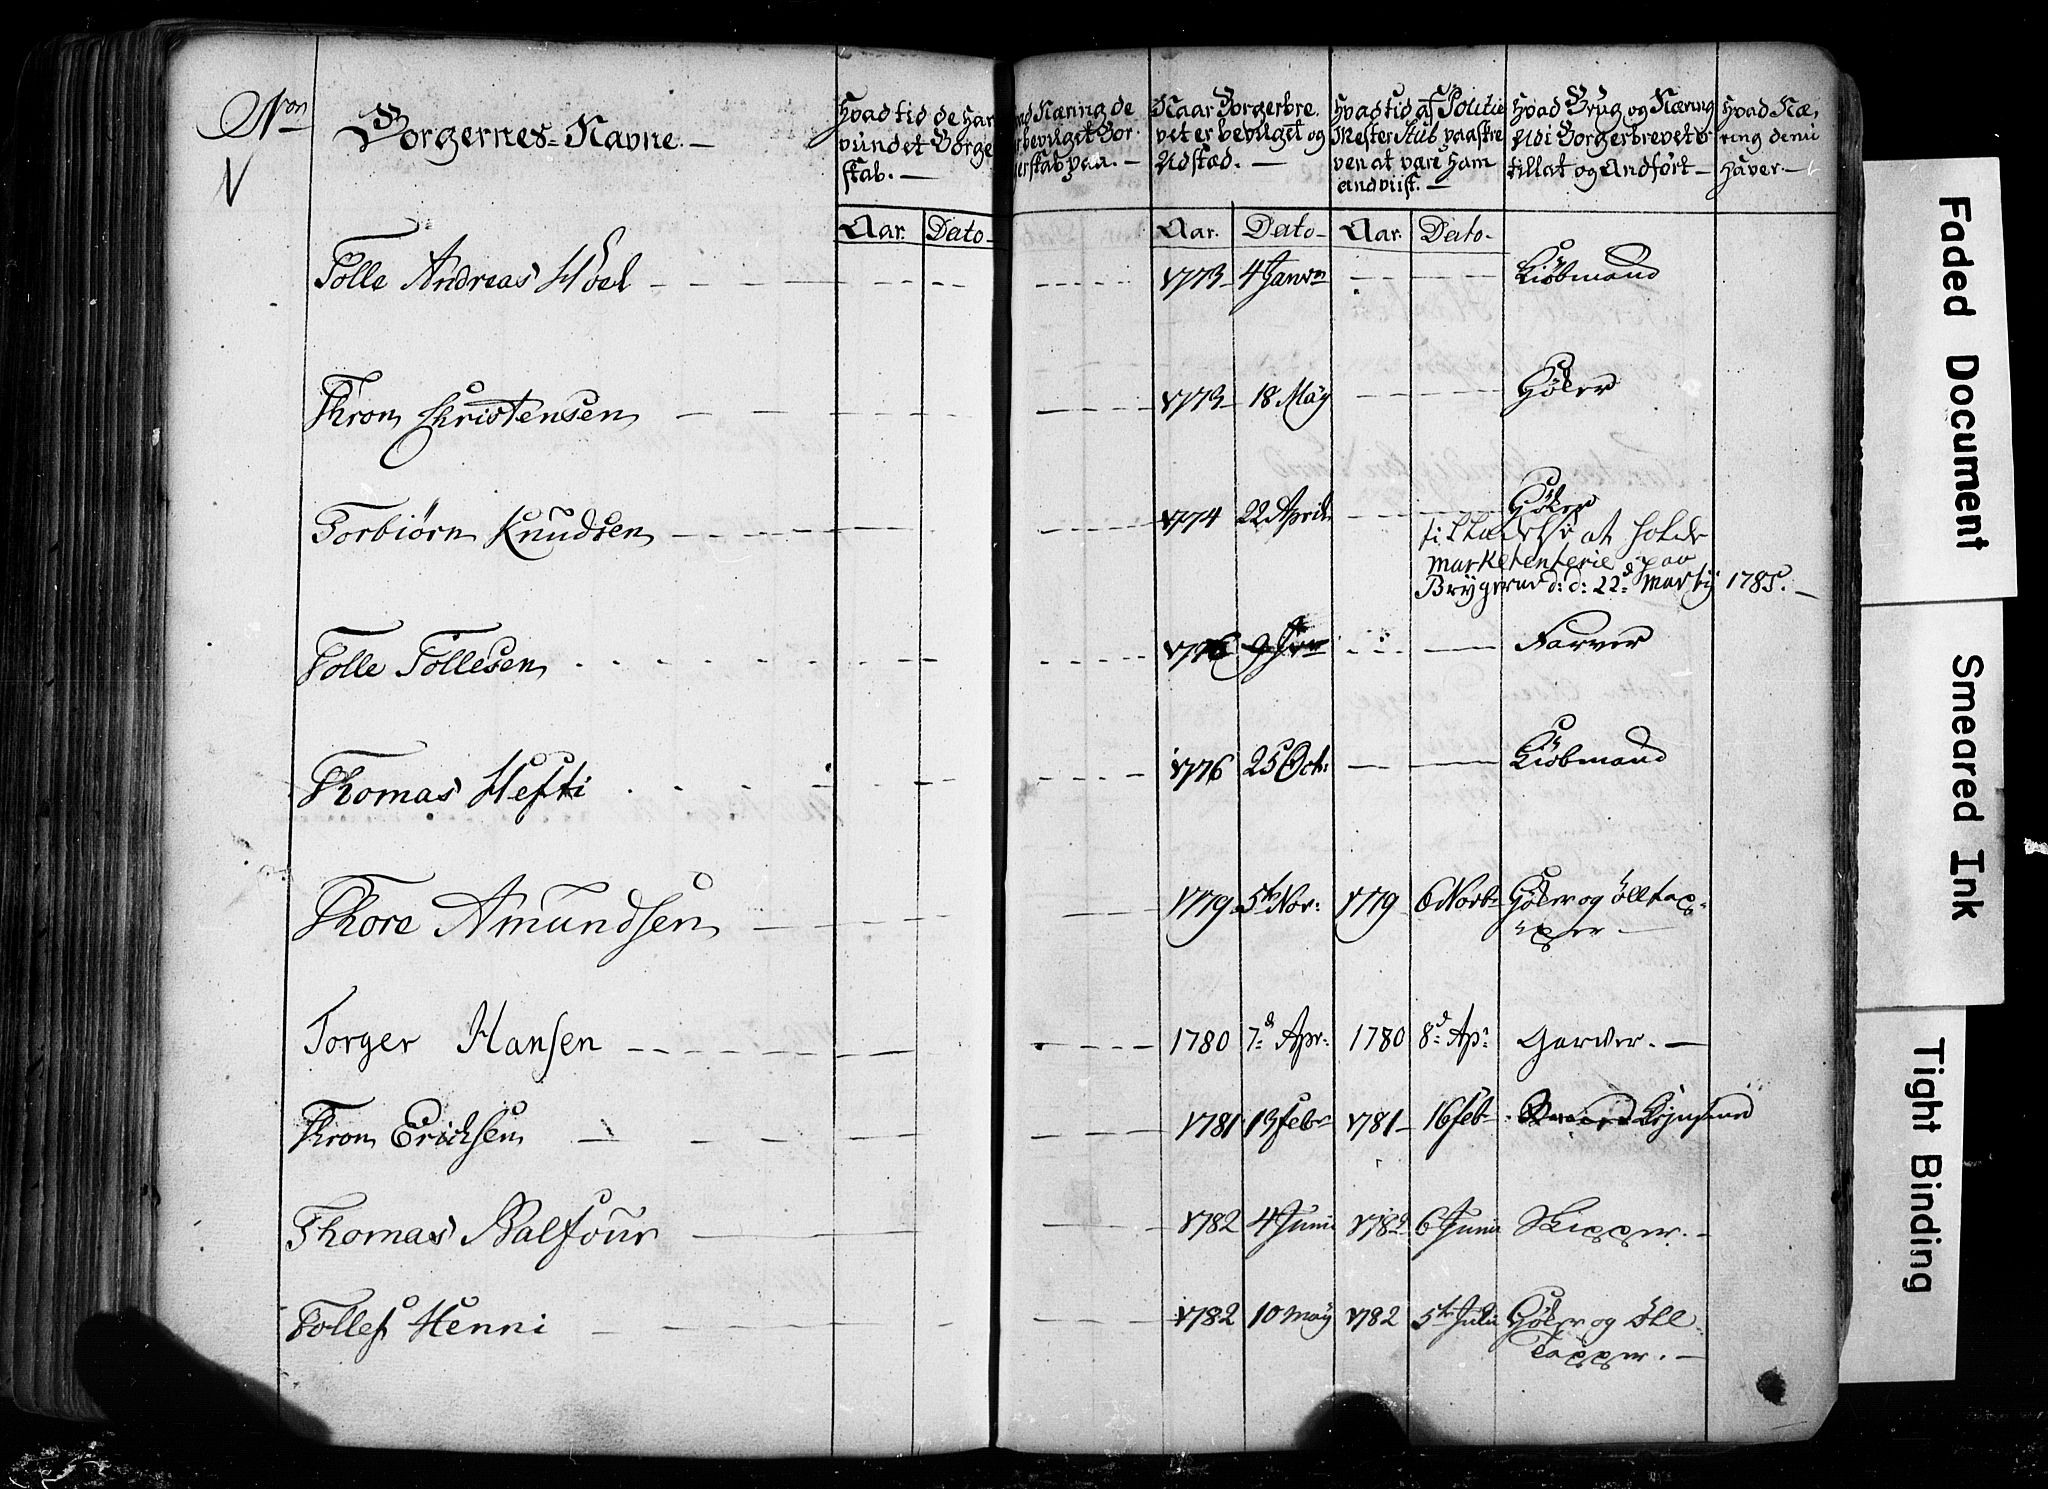 Non
Borgernes Navne. —
Hvad tid de har
vundet Borge
stab. —
Aar. Dato
Næring de
bevilget Bor
gerskab paa. —
Naar Borgerbre.
vet er bevilget og
Udstæd. —
Aar. Dato
Hvad tid af Politie
Mester Stub paaskre
ven at være ham
andviist. —
Aar. Dato
Hvad Brug og Næring
Udi Borgerbrevet er
tillat og Andført —
Hvad Næ,
ring de nu
haver. —
Tolle Andreas Hoel — 1773 4 Janv. — Kiöbmand
Thron Christensen — 1773 18 Maÿ — Höker
Torbiörn Knudsen — 1774 22 April — Höker
tilladelse at holde
marketenterie paa
Brygerne d: d: 22d Martij 1785. —
Tolle Tollesen — 1776 — Farver
Thomas Hefti — 1776 25 Oct: — Kiöbmand
Thore Amundsen — 1779 5te Nov: 1779 6 Novb. Höker og Ölltap-
per —
Torger Hansen — 1780 7d Apr: 1780 8d Ap: Garver. —
Thron Ericksen — 1781 13 Febr 1781 16 feb
Thomas Balfour — 1782 4 Junii 1782 6 Junii Skipper. —
Tollef Henni — 1782 10 Maÿ 1782 5te Julii Höker og Öll
Tapper. —
Faded Document
Smeared Ink
Tight Binding